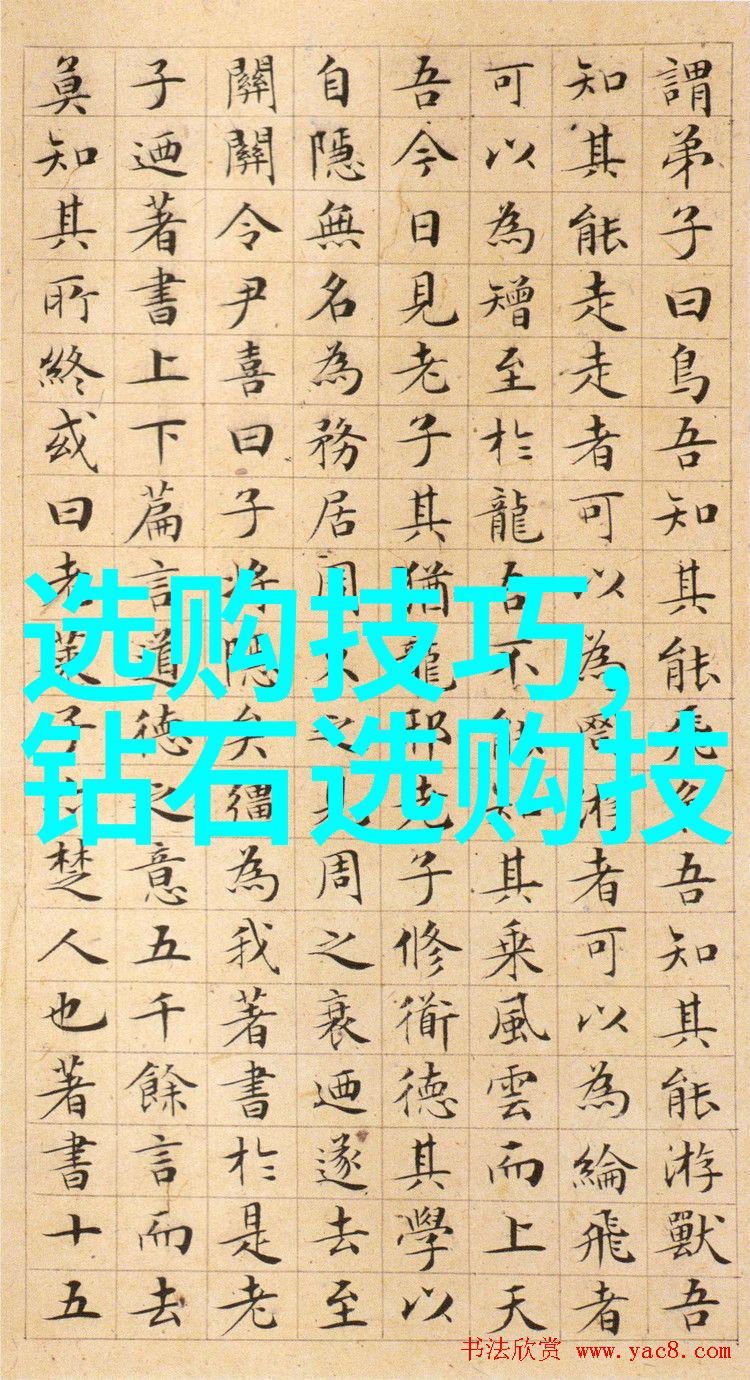 謂弟子曰鳥吾知其能飛魚吾知其能游獸吾
知其能走走者可以為罔游者可以為綸飛者
可以為矰至於龍吾不能知其乘風雲而上天
吾今日見老子其猶龍邪老子修衟德其學以
自隱無名為務居周久之見周之衰迺遂去至
關關令尹喜曰子將隱矣彊為我著書於是老
子迺著書上下篇言道德之意五千餘言而去
莫知其所終或曰老萊子亦楚人也著書十五
选购技巧,
钻石选购技
书法欣赏 www.yac8.com